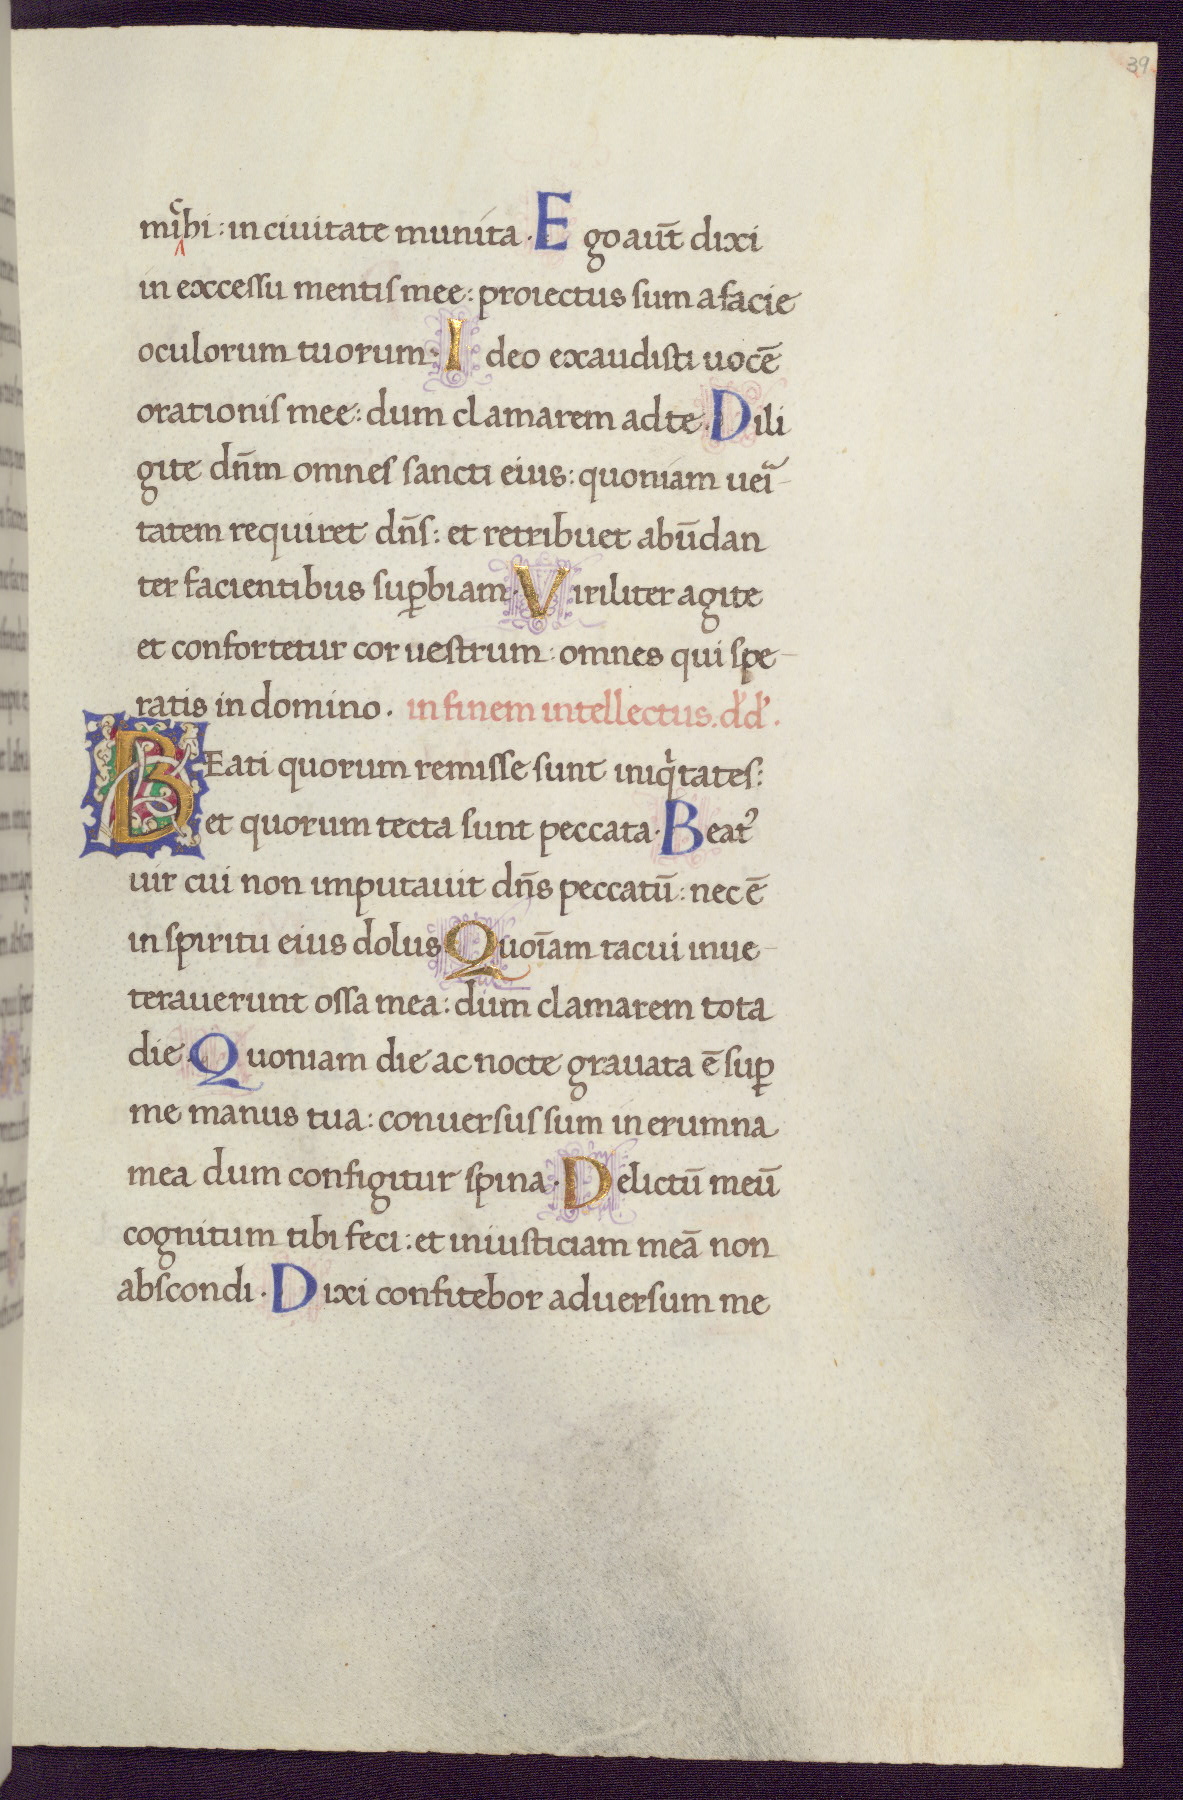 39
miͨbi : in ciuitate munita . Ego aut̄ dixi
in excessu mentis mee : proiectus sum a facie
oculorum tuorum . Ideo exaudisti uocē
orationis mee : dum clamarem ad te . Dili
gite dn̄m omnes sancti eius : quoniam ueri-
tatem requiret dn̄s : et retribuet abūdan
ter facientibus suꝑbiam . Viriliter agite
et confortetur cor uestrum : omnes qui spe-
ratis in domino . in finem intellectus . dd̓ .
BEati quorum remisse sunt iniqͥtates :
et quorum tecta sunt peccata . Beatꝰ
uir cui non imputauit dn̄s peccatū : nec ē
in spiritu eius dolus Quoīam tacui inue-
terauerunt ossa mea : dum clamarem tota
die . Quoniam die ac nocte grauata ē suꝑ
me manus tua : conuersus sum in erumna
mea dum configitur spina . Delictū meū
cognitum tibi feci : et iniusticiam meā non
abscondi . Dixi confitebor aduersum me